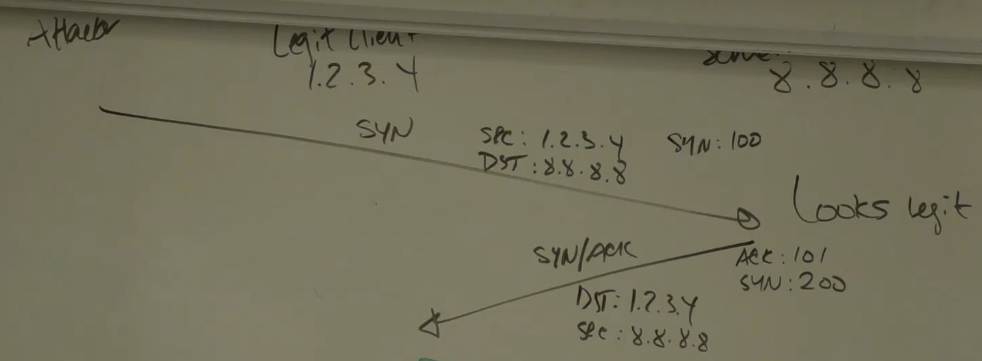 Attacker
Legit Client
1.2.3.4
Server
8.8.8.8
SYN
SRC: 1.2.3.4
DST: 8.8.8.8
SYN: 100
Looks legit
SYN/ACK
ACK: 101
SYN: 200
DST: 1.2.3.4
SRC: 8.8.8.8